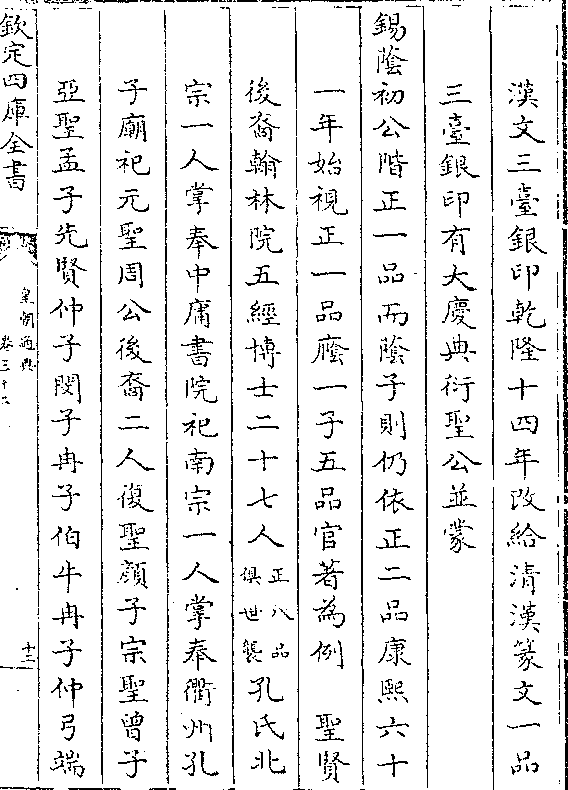 漢文三臺銀印乾隆十四年改給清漢篆文一品
三臺銀印有大慶典衍聖公並蒙
錫蔭初公階正一品而蔭子則仍依正二品康熙六十
一年始視正一品廕一子五品官著為例　聖賢
後裔翰林院五經博士二十七人正八品俱世襲孔氏北
宗一人掌奉中庸書院祀南宗一人掌奉衢州孔
子廟祀元聖周公後裔二人復聖顔子宗聖曾子
亞聖孟子先賢仲子閔子冉子伯牛冉子仲弓端
欽定四庫全書
皇朝通典
卷三十
十三